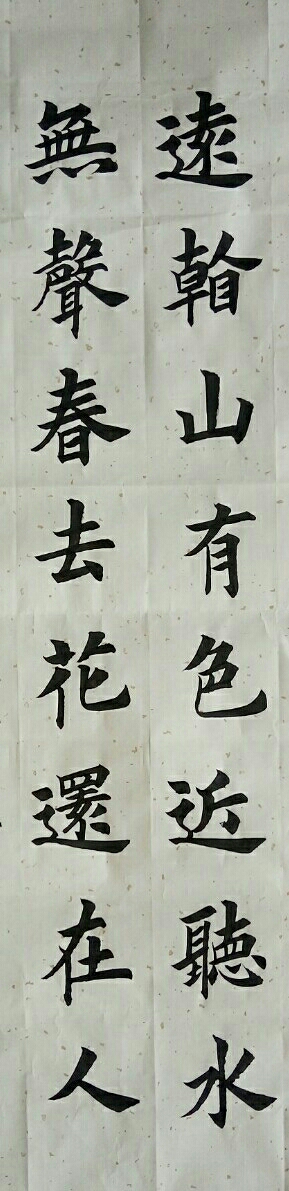 遠看山有色近聽水
無聲春去花還在人